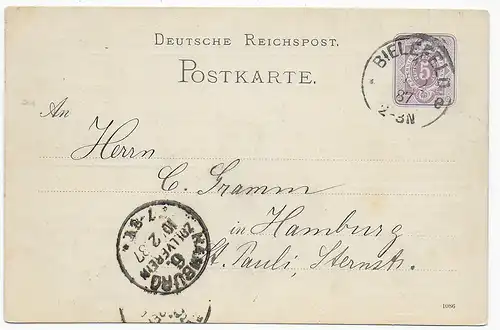 DEUTSCHE REICHSPOST.
POSTKARTE.
BIELEFELD
87
2-3N
5
An
Herrn
C. Gramm
in Hamburg
St. Pauli, Sternstr.
HAMBURG
6.
10 2.87
7-8V
1086